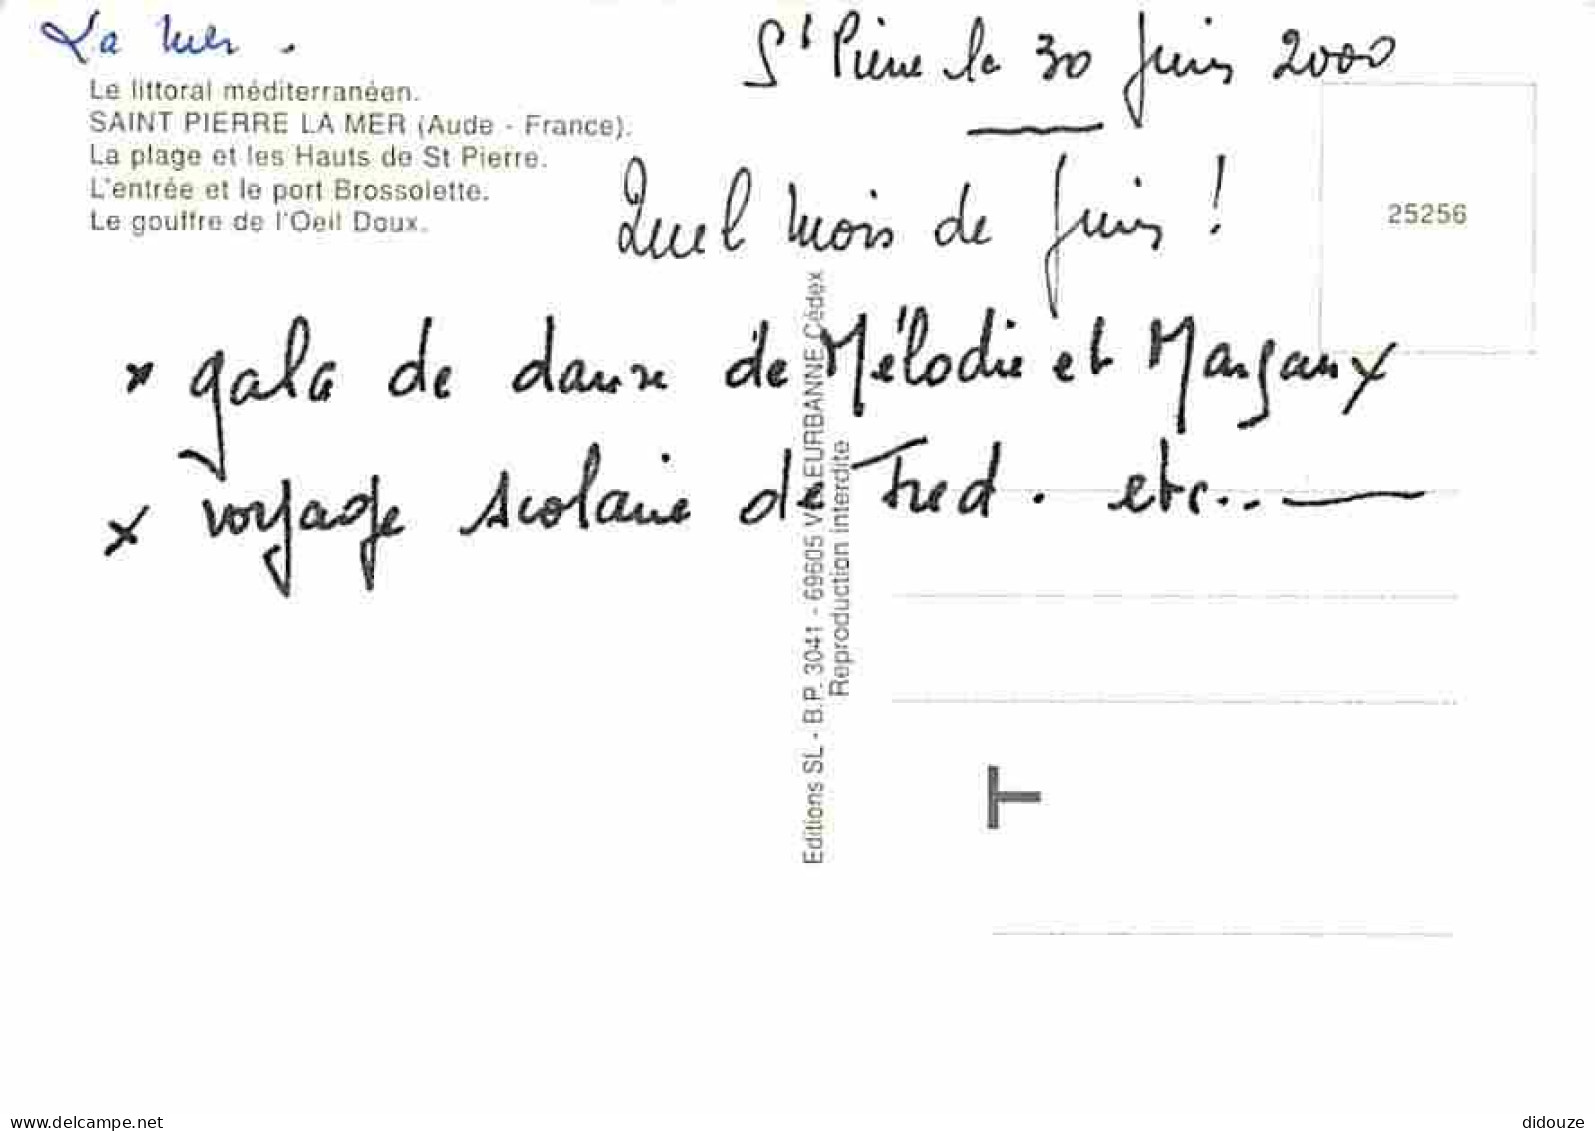 La mer.
St Pierre le 30 Juin 2000
Le littoral méditerranéen.
SAINT PIERRE LA MER (Aude - France).
La plage et les Hauts de St Pierre.
L'entrée et le port Brossolette.
Le gouffre de l'Oeil Doux.
25256
Quel mois de Juin !
x gala de danse de Mélodie et Margaux
x voyage scolaire de Fred. etc..
Editions SL - B.P. 3041 - 69605 VILLEURBANNE Cédex
Reproduction interdite
T
www.delcampe.net
didouze